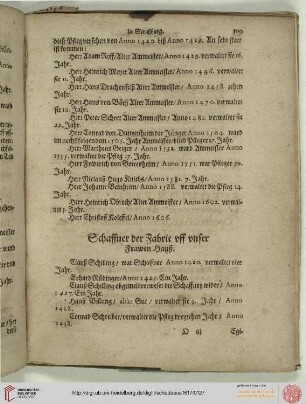 in Straßburg. 109
diese Pfleg versehen von Anno 1420. biß Anno 1429. An sein statt
ist kommen:
Herr Adam Roff/ Alter Ammeister/ Anno 1429. verwaltet sie 16.
Jahr.
Herr Heinrich Meyer Alter Ammeister/ Anno 1446. verwaltet
sie 11. Jahr.
Herr Hans Drachenfelß Alter Ammeister/ Anno 1458. zehen
Jahr.
Herr Hans von Börß Alter Ammeister/ Anno 1470. verwaltet
sie 10. Jahr.
Herr Peter Schott Alter Ammeister/ Anno 1482. verwaltet sie
22. Jahr.
Herr Conrad von Duntzenheim der Jünger Anno 1504. ward
im nachfolgenden 1505. Jahr Ammeister/ blieb Pfleger 27. Jahr.
Herr Mattheus Geiger / Anno 1532. ward Ammeister / Anno
1535. verwaltet die Pfleg 17. Jahr.
Herr Friderich von Gottesheim / Anno 1551. war Pfleger 30.
Jahr.
Herr Nicolauß Hugo Kniebs/ Anno 1581. 7. Jahr.
Herr Johann Wainheim/ Anno 1588. verwaltet die Pfleg 14.
Jahr.
Herr Heinrich Obrecht Alter Ammeister/ Anno 1602. verwal-
tet 5. Jahr.
Herr Christoff Köleffel/ Anno 1606.
Schaffner der Fabric vff vnser
Frawen Hauß.
Clauß Schilling/ war Schaffner Anno 1420. verwaltet vier
Jahr.
Erhard Rüdinger/ Anno 1425. Ein Jahr.
Clauß Schilling obgemelt verwaltet die Schaffney wider/ Anno
1427. Ein Jahr.
Hans Bülling/ aliàs Gut / verwaltet sie 9. Jahr / Anno
1428.
Conrad Schreiber/ verwaltet die Pfleg dreyzehen Jahr / Anno
1438.
O iij
http://digi.ub.uni-heidelberg.de/diglit/schadaeus1617/0127
UNIVERSITÄTS-
BIBLIOTHEK
HEIDELBERG